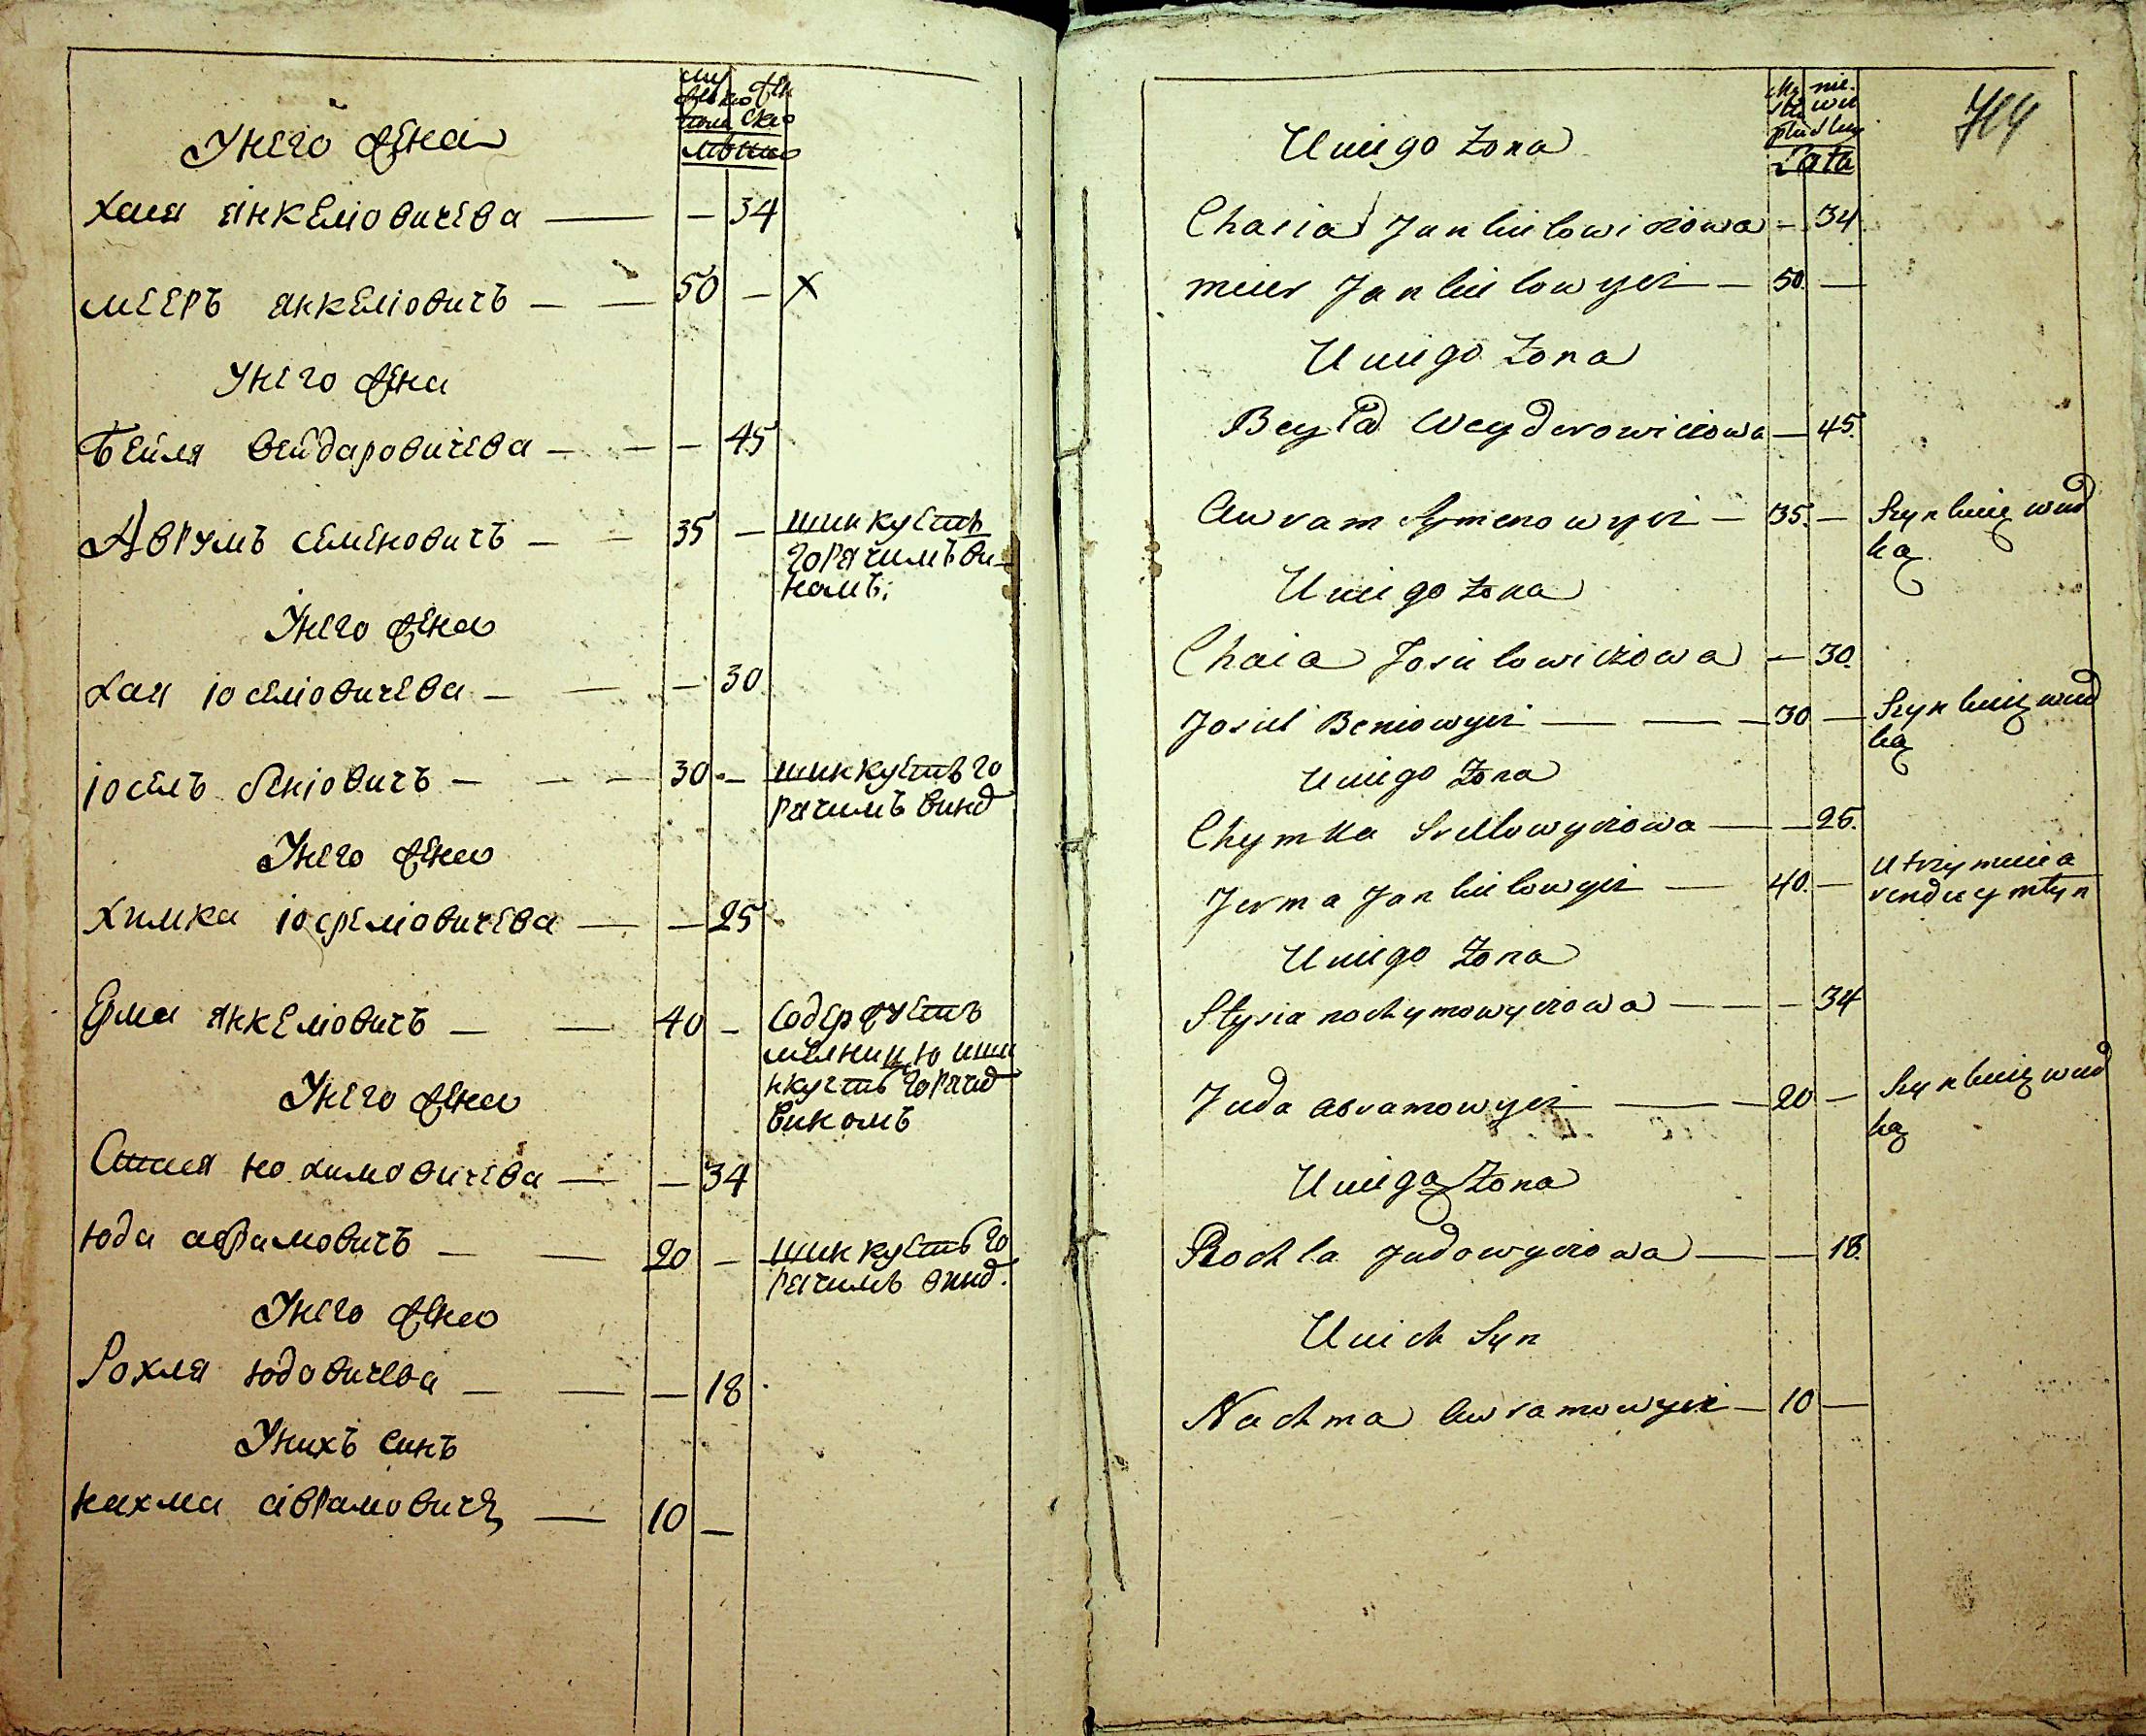 мужеско жен
пола ско
лѣта
Унего жена
хаия янкеліовичева — — 34
мееръ янкеліовичъ — — 50 — х
Унего жена
Бейля вейдаровичева — — — 45
Аврумъ семеновичъ — — 35 — шинкуетъ
горячимъ ви-
номъ;
Унего жена
хая іоселіовичева — — — 30
іосель беніовичъ — — — 30 — шинкуетъ го
рячимъ вино
Унего жена
химка іосреліовичева — — 25
Ерма янкеліовичъ — — 40 — содержуетъ
мелницю ши
нкуетъ горячи
виномъ
Унего жена
Стися нохимовичева — — 34
юда аврамовичъ — — 20 — шинкуетъ го
рячимъ вино.
Унего жена
Рохля юдовичева — — — 18
Унихъ синъ
нахма аврамовичъ — 10 —
Męz nie-
ska wia
płed sky
Lata
Uniego Żona
Chasia Jankielowiczowa — 34
meier Jankielowycz — 50. —
Uniego Żona
Beyla Weyderowiczowa — 45.
Awram Symenowycz — 35. — Szynkuię wud
ką
Uniego Żona
Chaia Josielowiczowa — 30.
Josiel Beniowycz — — — 30 — Szynkuię wud
ką
Uniego Żona
Chymka Srellowyczowa — — 25.
Jerma Jankielowycz — 40. — Utrzymuie a
renducy młyn
Uniego Żona
Stysia nochymowyczowa — — 34
Juda abramowycz — — 20 — Szynkuię wud
ką
Uniego Żona
Rochla Judowyczowa — — 18.
Unich Syn
Nachma Awramowycz — 10 —